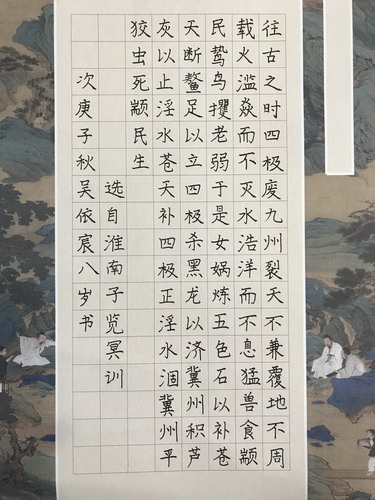 往古之时四极废九州裂天不兼覆地不周
载火滥焱而不灭水浩洋而不息猛兽食颛
民鸷鸟攫老弱于是女娲炼五色石以补苍
天断鳌足以立四极杀黑龙以济冀州积芦
灰以止淫水苍天补四极正淫水涸冀州平
狡虫死颛民生
选自淮南子览冥训
次庚子秋吴依宸八岁书